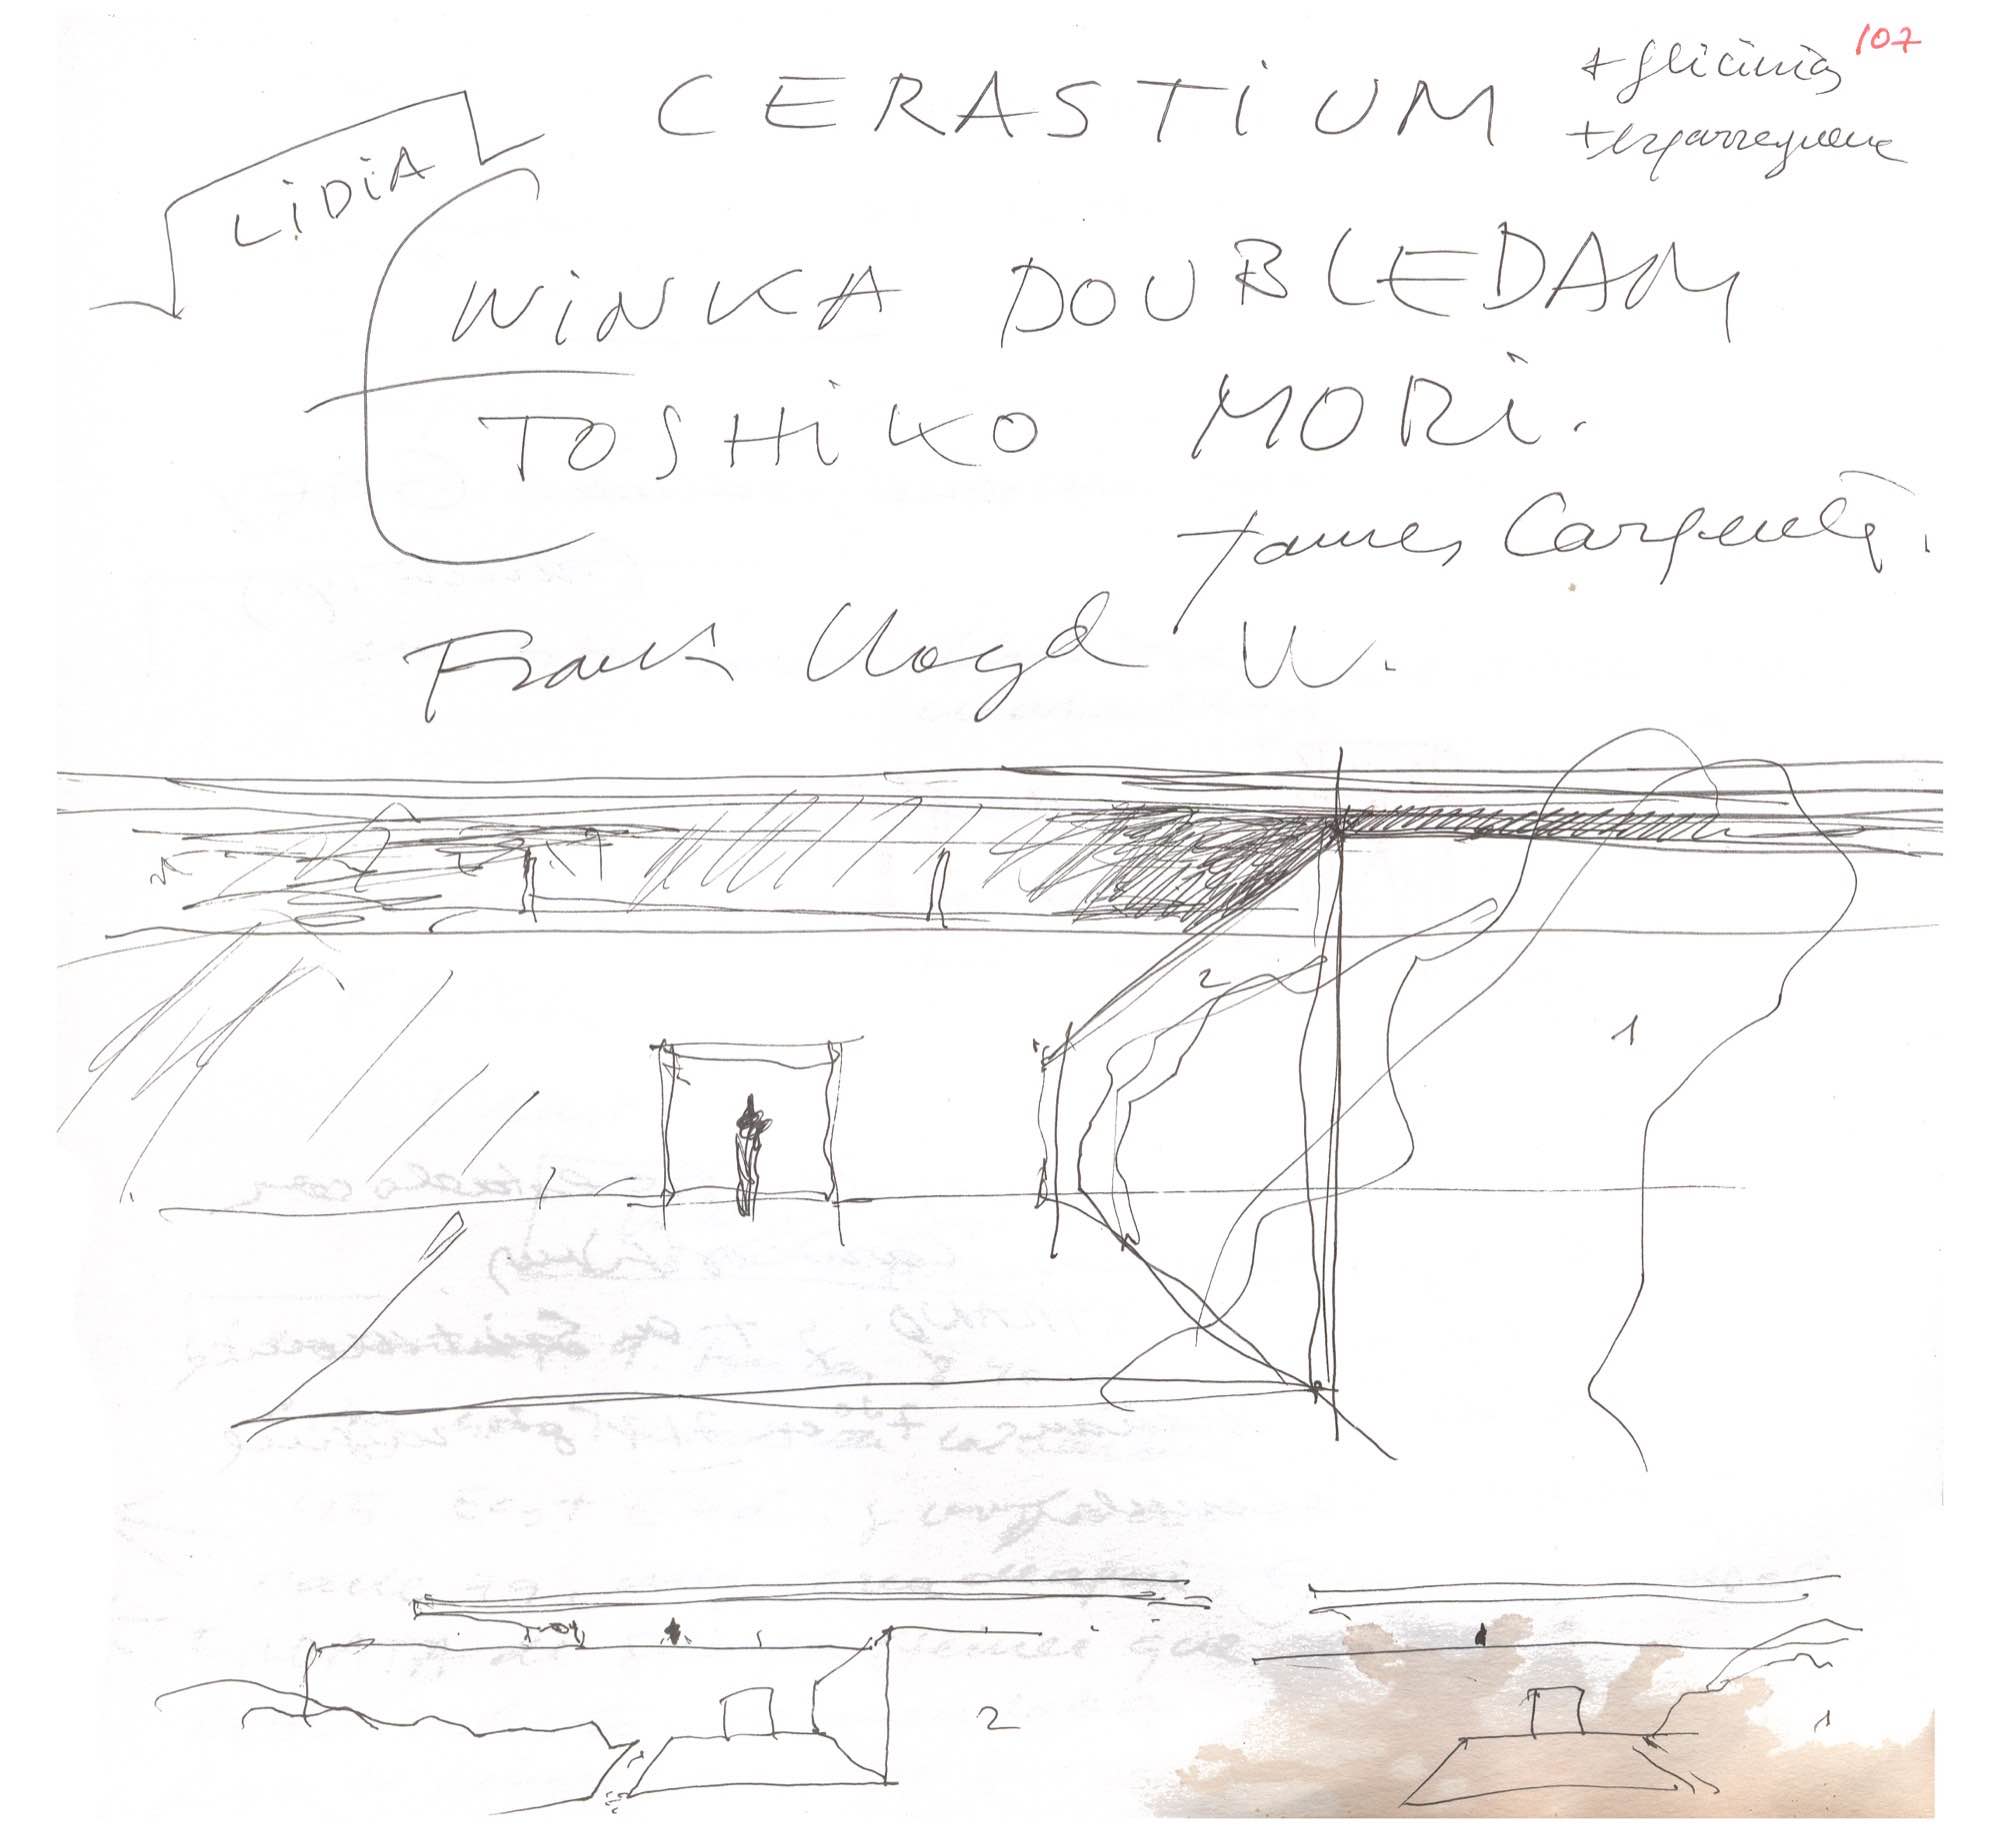 107
CERASTiUM
+ glicinias
LiDiA
WiNKA DOUBLEDAM
TOSHiKO MORi.
James Carpenter.
Frank Lloyd W.
2
1
2
1